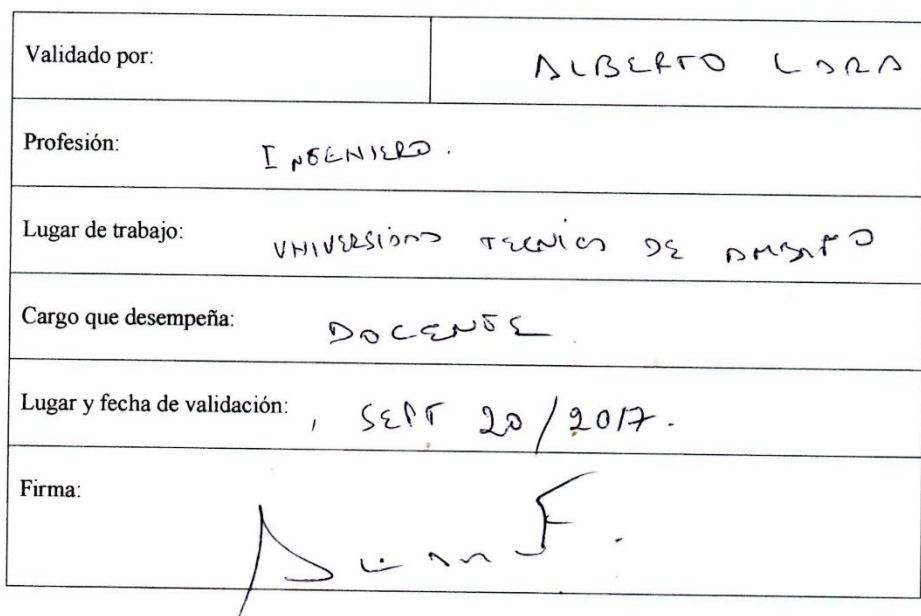 Validado por: ALBERTO LARA
Profesión: INGENIERO.
Lugar de trabajo: UNIVERSIDAD TECNICA DE AMBATO
Cargo que desempeña: DOCENTE
Lugar y fecha de validación: , SEPT 20/2017.
Firma: